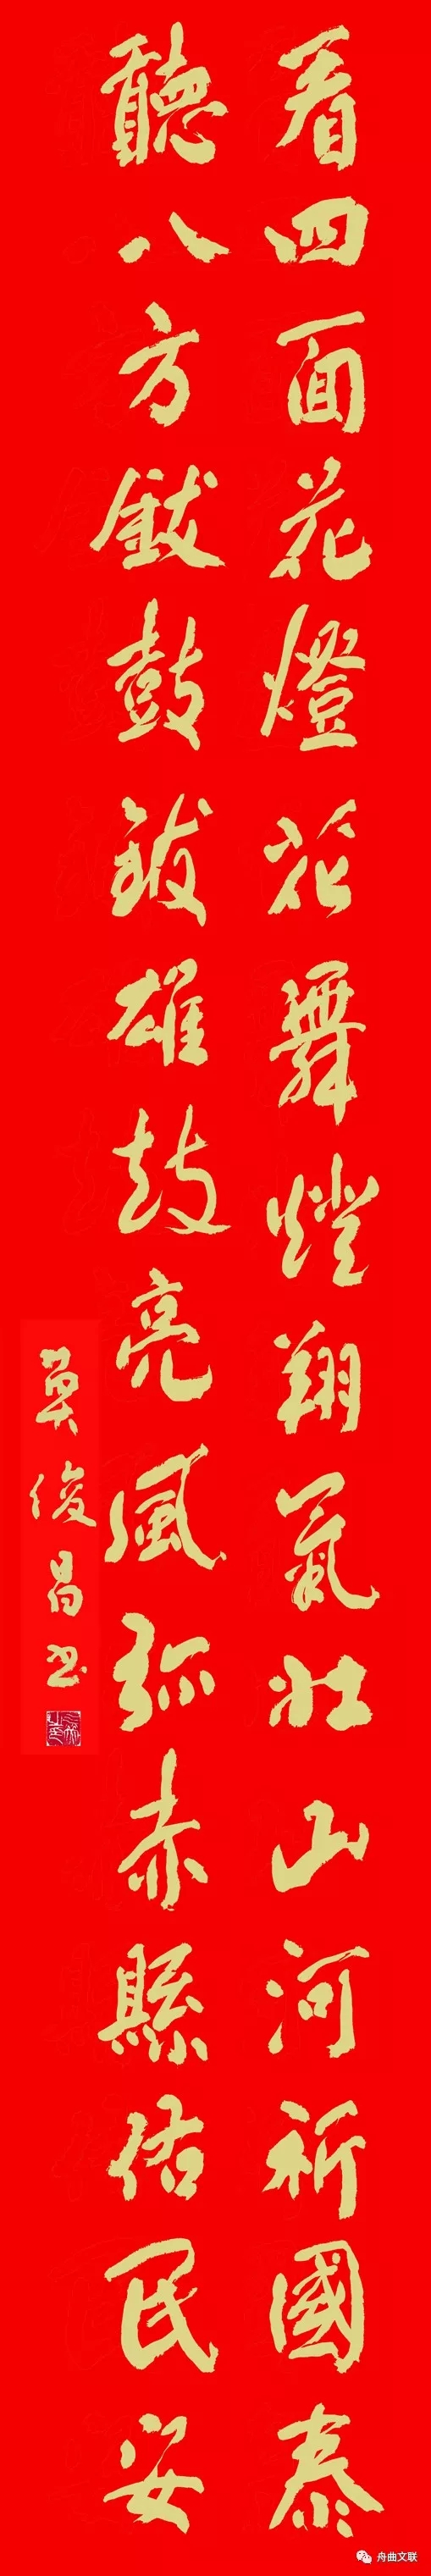 看四面花燈花舞燈翔氣壯山河祈國泰
聽八方鈸鼓鈸雄鼓亮風弥赤縣佑民安
莫俊昌书
舟曲文联